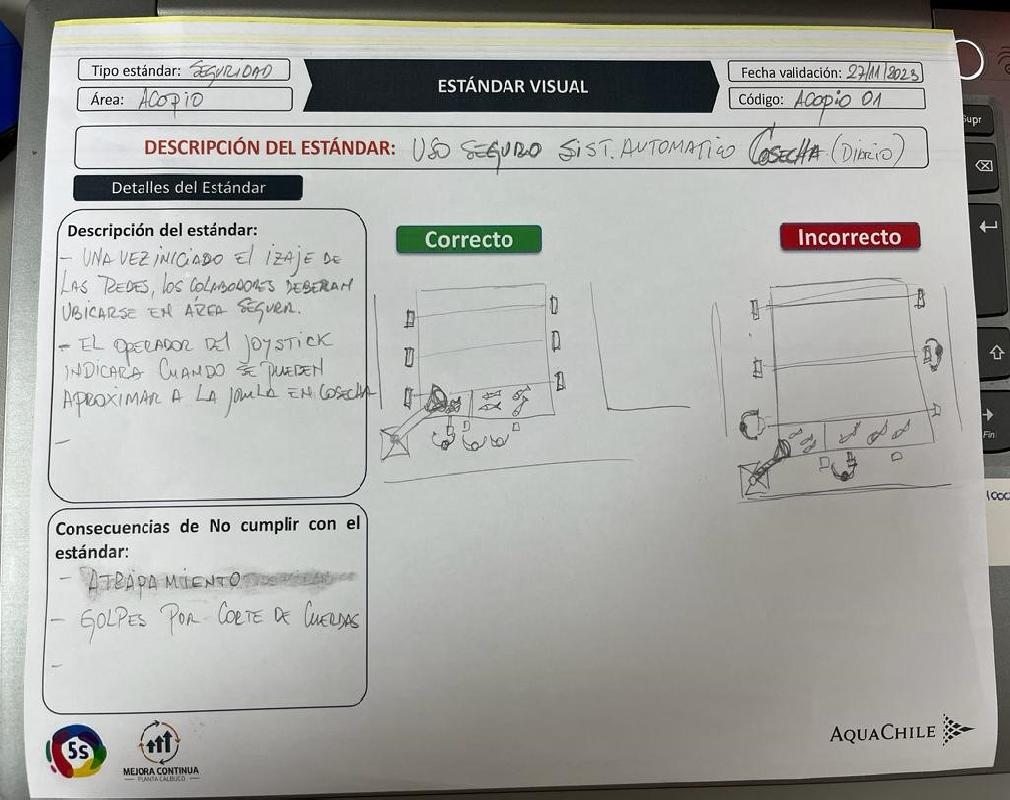 Tipo estándar: SEGURIDAD
Área: ACOPIO
ESTÁNDAR VISUAL
Fecha validación: 27/11/2023
Código: ACOPIO 01
DESCRIPCIÓN DEL ESTÁNDAR: USO SEGURO SIST. AUTOMATICO COSECHA (DIARIO)
Detalles del Estándar
Descripción del estándar:
- UNA VEZ INICIADO El IZAJE DE
LAS REDES, LOS COLABODORES DEBERAN
UBICARSE EN ÁREA SEGURA.
- EL OPERADOR DEL JOYSTICK
INDICARA CUANDO SE PUEDEN
APROXIMAR A LA JAULA EN COSECHA
-
Correcto
Incorrecto
Consecuencias de No cumplir con el
estándar:
- ATRAPAMIENTO
- GOLPES POR CORTE DE CUERDAS
-
5S
MEJORA CONTINUA
PLANTA CALBUCO
AQUACHILE
Supr
Fin